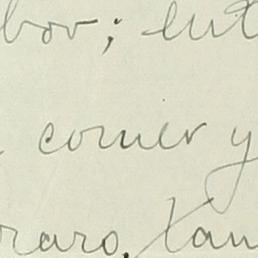 bor; ent
comer y
raro, tan